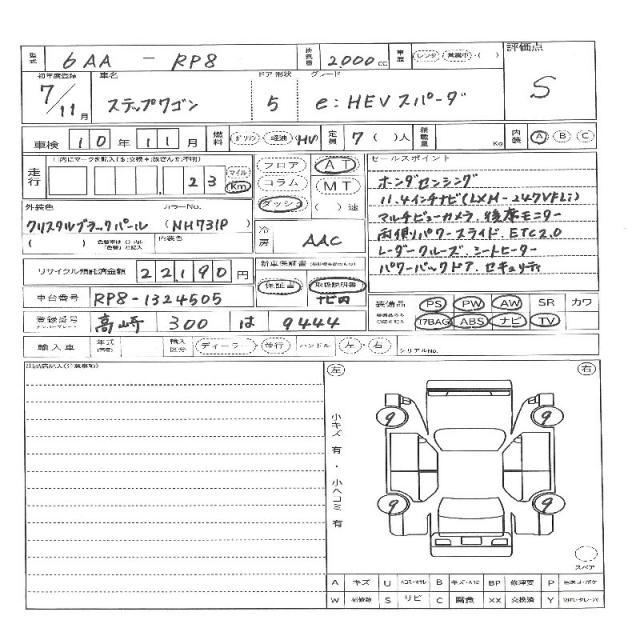 型式 6AA - RP8 排気量 2,000cc 車歴 レンタ・営業中・( ) 評価点
初年度登録 車名 ドア形状 グレード S
7/11月 ステップワゴン 5 e:HEVスパーダ
車検 10年11月 燃料 ガソリン・軽油(HV) 定員 7( )人 積載量 Kg 内装 A B C
走行 23 マイル Km
フロア AT
コラム MT
ダッシュ ( )速
セールスポイント
ホンダセンシング
11.4インチナビ(LXM-247VFLi)
マルチビューカメラ、後席モニター
両側パワースライド、ETC2.0
レーダークルーズ、シートヒーター
パワーバックドア、セキュリティ
外装色 カラーNo.
クリスタルブラックパール (NH731P)
内装色
冷房 AAC
リサイクル預託済金額 22,190円
新車保証書
保証書 取扱説明書
ナビ内
車台番号 RP8-1324505
装備品 PS PW AW SR カワ
ABS ナビ TV
登録番号 高崎 300 は 9444
輸入車 年式 輸入区分 ディーラー・並行 ハンドル 左・右 シリアルNo.
左 右
小キズ有・小ヘコミ有
9 9
9 9
スペア
A キズ U B BP P
W S サビ C 腐食 XX 交換済 Y